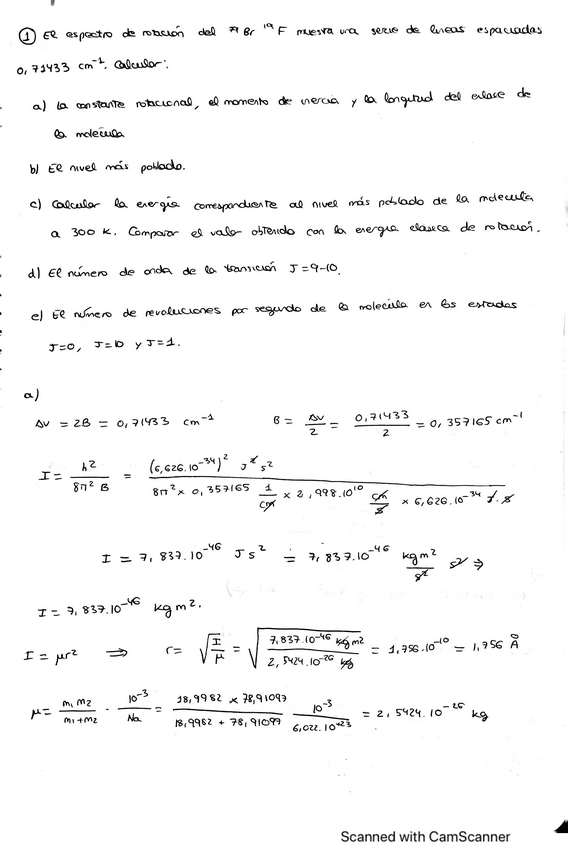 ① El espectro de rotación del ⁷⁹Br ¹⁹F muestra una serie de líneas espaciadas
0,71433 cm⁻¹. Calcular:
a) la constante rotacional, el momento de inercia y la longitud del enlace de
la molécula
b) El nivel más poblado.
c) Calcular la energía correspondiente al nivel más poblado de la molécula
a 300 K. Comparar el valor obtenido con la energía clásica de rotación.
d) El número de onda de la transición J=9-10.
e) El número de revoluciones por segundo de la molécula en los estados
J=0, J=10 y J=1.
a)
Δν = 2B = 0,71433 cm⁻¹ B = Δν/2 = 0,71433/2 = 0,357165 cm⁻¹
I = h²/(8π² B) = (6,626.10⁻³⁴)² J² s² / (8π² x 0,357165 1/cm x 2,998.10¹⁰ cm/s x 6,626.10⁻³⁴ J.s)
I = 7,837.10⁻⁴⁶ J s² = 7,837.10⁻⁴⁶ kg m²/s² s² ⇒
I = 7,837.10⁻⁴⁶ kg m².
I = μr² ⇒ r = √(I/μ) = √(7,837.10⁻⁴⁶ kg m² / 2,5424.10⁻²⁶ kg) = 1,756.10⁻¹⁰ = 1,756 Å
μ = m₁ m₂/(m₁+m₂) . 10⁻³/Na = (18,9982 x 78,91097)/(18,9982 + 78,91097) 10⁻³/6,022.10⁺²³ = 2,5424.10⁻²⁶ kg
Scanned with CamScanner